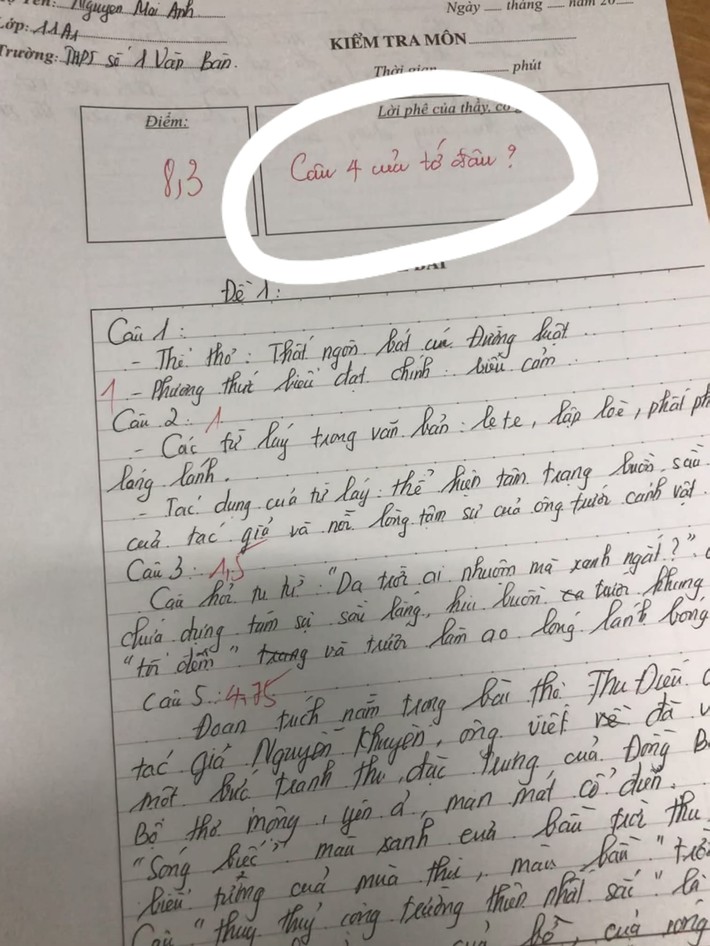 Tên: Nguyen Mai Anh
Lớp: 11A1
Trường: THPT số 1 Văn Bàn.
Ngày __ tháng __ năm 20
KIỂM TRA MÔN
Thời gian phút
Điểm:
8,3
Lời phê của thầy, cô
Câu 4 của tớ đâu?
BÀI
Đề 1:
Câu 1:
- Thể thơ: Thất ngôn bát cú Đường luật.
1 - Phương thức biểu đạt chính: biểu cảm.
Câu 2: 1
- Các từ láy trong văn bản: le te, lập loè, phất ph
lóng lánh.
- Tác dụng của từ láy: thể hiện tâm trạng buồn, sầu
của tác giả và nỗi lòng tâm sự của ông trước cảnh vật.
Câu 3: 1,5
Câu hỏi tu từ: "Da trời ai nhuộm mà xanh ngắt?".
chứa đựng tâm sự sâu lắng, hiu buồn trước khung
"tối đêm" và trước làn ao lóng lánh bóng
Câu 5: 4,75
Đoạn trích nằm trong bài thơ Thu Điếu
tác giả Nguyễn Khuyến, ông viết về đã v
một bức tranh thu, đặc trưng của Đồng B
Bộ thơ mộng, yên ả, man mát cổ điển.
"Sóng biếc" màu xanh của bầu trời thu
biểu tượng của mùa thu, màu
Câu "thuỷ thuỷ cộng trường thiên nhất sắc" là
của